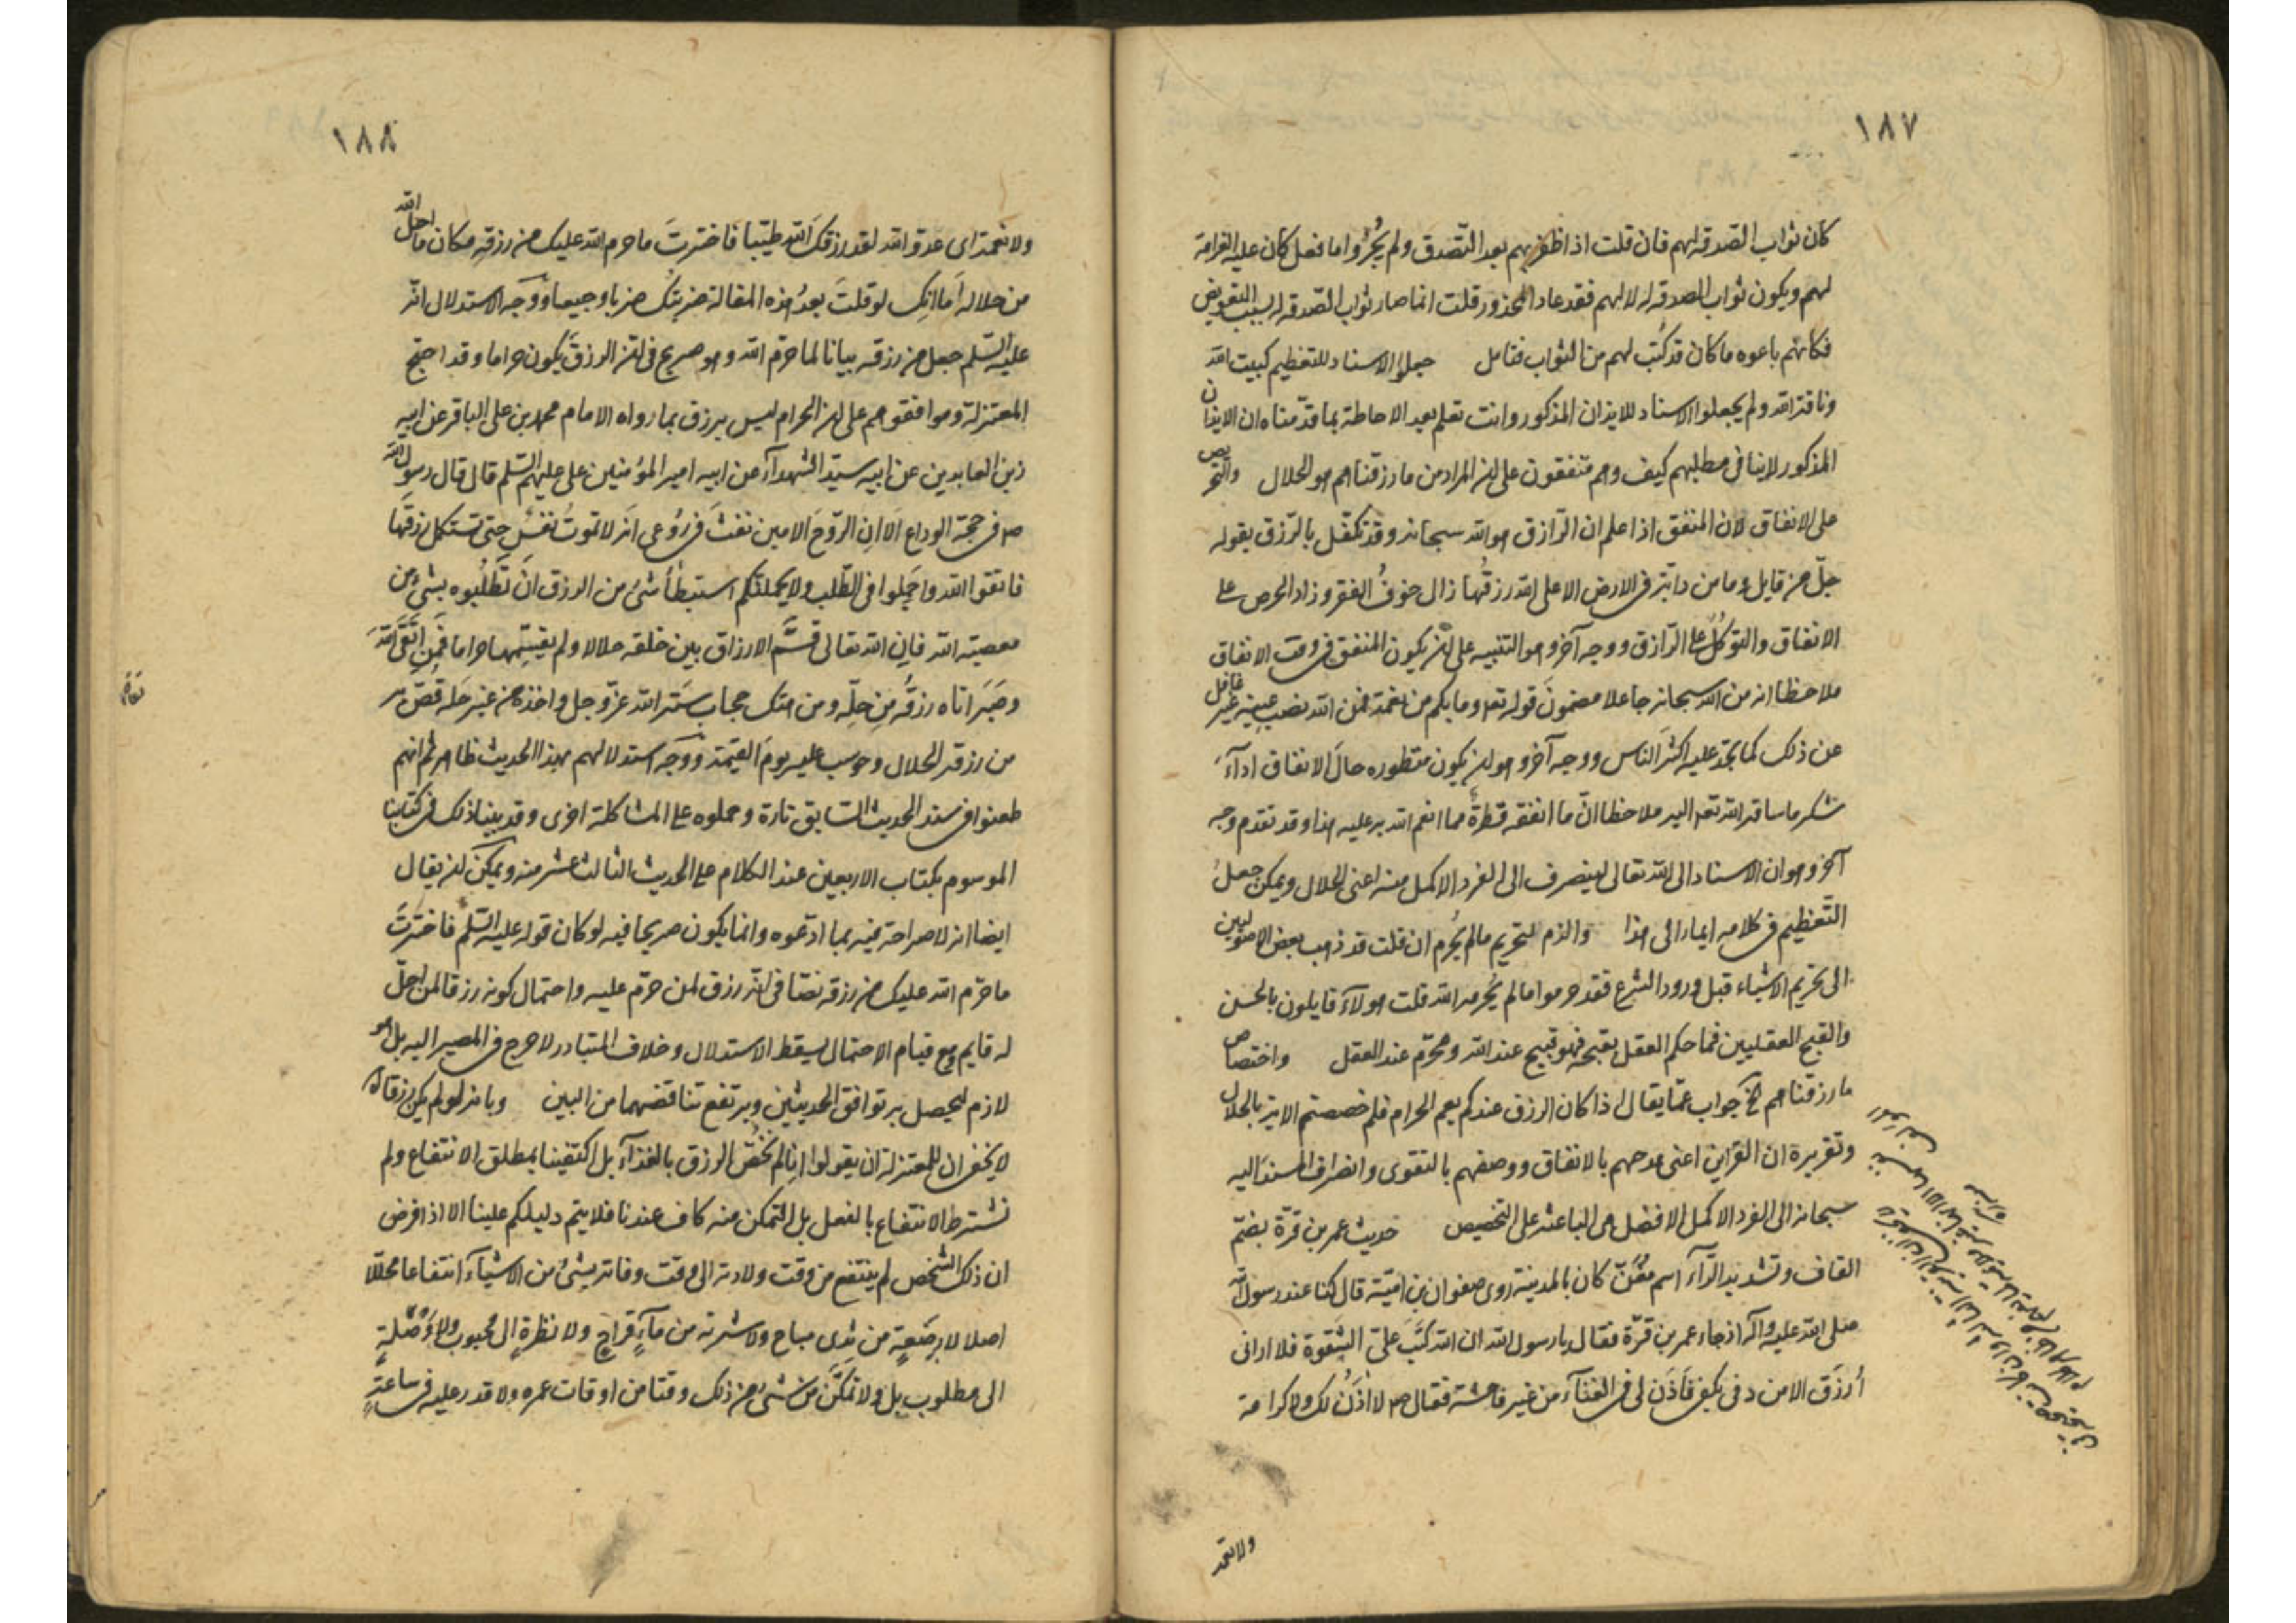 ١٨٧
كان ثواب الصدقة لهم فان قلت اذا ظفر بهم بعد التصدق ولم يُجيزوا ما فعل كان عليه الغرامة
لهم ويكون ثواب الصدقة له لا لهم فقد عاد المحذور قلت انما صار ثواب الصدقة له بسبب التعويض
فكانهم باعوه ما كان قد كُتب لهم من الثواب فتامل جعلوا الاسناد للتعظيم كبيت الله
وناقة الله ولم يجعلوا الاسناد للايذان المذكور وانت تعلم بعد الاحاطة بما قدمناه ان الايذان
المذكور لا ينافى مطلبهم كيف وهم متفقون على ان المراد من ما رزقناهم هو الحلال والتحريص
على الانفاق لان المنفق اذا علم ان الرازق هو الله سبحانه وقد تكفّل بالرّزق بقوله
جلّ من قايل وما من دابّة فى الارض الا على الله رزقُها زال خوفُ الفقر وزاد الحرص على
الانفاق والتوكلُ على الرّازق ووجه آخر وهو التنبيه على ان يكون المنفق فى وقت الانفاق
ملاحظا انه من الله سبحانه جاعلا مضمونَ قوله تعه وما بكم من نعمة فمن الله نصب عينيه غير غافل
عن ذلك كما تجد عليه اكثرَ الناس ووجه آخر وهو ان يكون منظوره حالَ الانفاق اداءَ
شكر ما ساقه الله تعه اليه ملاحظا انّ ما انفقه قطرةٌ مما انعم الله به عليه هذا وقد تقدم وجه
آخر وهو ان الاسناد الى الله تعالى لينصرف الى الفرد الاكمل منه اعنى الحلال ويمكن جعلُ
التعظيم فى كلامه ايماء الى هذا والذم لتحريم مالم يُحرم ان قلت قد ذهب بعض الاصوليين
الى تحريم الاشياء قبل ورود الشرع فقد حرموا مالم يُحرمه الله قلت هولآء قايلون بالحسن
والقبح العقليين فما حكم العقل بقبحه فهو قبيح عند الله ومحرّم عند العقل واختصاص
ما رزقناهم الخ جواب عمّا يقال اذا كان الرزق عندكم يعم الحرام فلم خصصتم الاية بالحلال
وتقريره ان القراين اعنى مدحهم بالانفاق ووصفهم بالتقوى وانصراف المسند اليه
سبحانه الى الفرد الاكمل الافضل هى الباعثة على التخصيص حديث عمر بن قرّة بضمّ
القاف وتشديد الرّاء اسم مغنّ كان بالمدينة روى صفوان بن اميّة قال كنا عند رسول الله
صلى الله عليه وآله اذ جاء عمر بن قرّة فقال يا رسول الله ان الله كتبَ علىّ الشقوة فلا ارانى
اُرزَق الا من دفى بكفى فأذَن لى فى الغنآء من غير فاحشة فقال ص لا آذن لك ولا كرامة
ولا نعمة
١٨٨
ولا نعمة اى عدوّ الله لقد رزقكَ الله طيّبا فاخترتَ ما حرم الله عليك من رزقه مكان ما احل الله
من حلاله اَما انك لو قلتَ بعدُ هذه المقالة ضربتُك ضربا وجيعا ووجه الاستدلال انّه
عليه السّلم جعل من رزقه بيانا لما حرّم الله وهو صريح فى ان الرزقَ يكون حراما وقد احتج
المعتزلة وموافقوهم على ان الحرام ليس برزق بما رواه الامام محمد بن على الباقر عن ابيه
زين العابدين عن ابيه سيّد الشهدآء عن ابيه امير المؤمنين على عليهم السّلم قال قال رسول الله
ص فى حجّة الوداع اَلا ان الرّوحَ الامين نفثَ فى رُوعى انه لا تموتُ نفسٌ حتى تستكمل رزقَها
فاتقوا الله واجملوا فى الطّلب ولا يحملنّكم استبطأ شئ من الرزق انْ تطلبوه بشئ من
معصية الله فان الله تعالى قسَّم الارزاق بين خلقه حلالا ولم يقسِّمها حراما فمن اتّقى الله
وصَبَرَ اتاه رزقُه مِن حِلّه ومن هتك حجاب سَتر الله عزّ وجل واخذه من غير حَله قُصّ به
من رزقه الحلال وحوسب عليه يومَ القيمة ووجه استدلالهم بهذا الحديث ظاهر ثم انهم
طعنوا فى سند الحديث السّابق تارة وحملوه على المشاكلة اخرى وقد بينا ذلك فى كتابنا
الموسوم بكتاب الاربعين عند الكلام على الحديث الثالث عشر منه ويمكن ان يقال
ايضا انه لا صراحة فيه بما ادّعوه وانما يكون صريحا فيه لو كان قوله عليه السّلم فاخترتَ
ما حرّم الله عليك من رزقه نصّا فى انّه رزق لمن حرّم عليه واحتمال كونه رزقا لمن احلّ
له قايم ومع قيام الاحتمال يسقط الاستدلال وخلاف المتبادر لا حرج فى المصير اليه بل هو
لازم ليحصل به توافق الحديثين ويرتفع تناقضهما من البين وبانه لو لم يكن رزقا له
لا يخفى ان للمعتزلة ان يقولوا انا لم نخُصّ الرزق بالغذآء بل اكتفينا بمطلق الانتفاع ولم
نشترط الانتفاع بالفعل بل التمكن منه كاف عندنا فلا يتم دليلكم علينا الا اذا فرض
ان ذلك الشخص لم ينتفع من وقت ولادته الى وقت وفاته بشئ من الاشيآء انتفاعا محلّلا
اصلا لا برضعةٍ من ثدى مباح ولا شربة من مآءٍ قراحٍ ولا نظرةٍ الى محبوب ولا وُصْلةٍ
الى مطلوب بل ولا تمكّن من شئ من ذلك وقتا من اوقات عمره ولا قدر عليه فى ساعةٍ